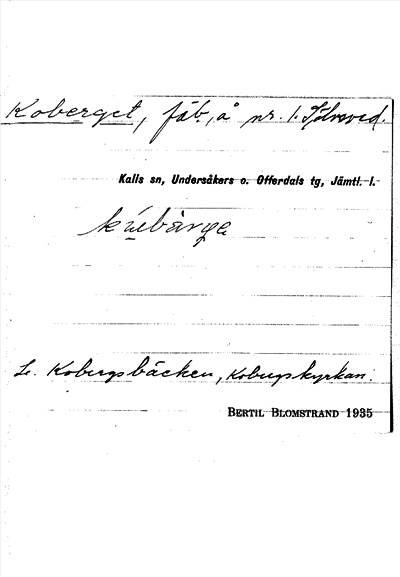 Koberget, fäb., å nr. 1. Sölvsved.
Kalls sn, Undersåkers o. Offerdals tg, Jämtl. l.
Se. Kobergsbäcken, Kobergskyrkan.
BERTIL BLOMSTRAND 1935